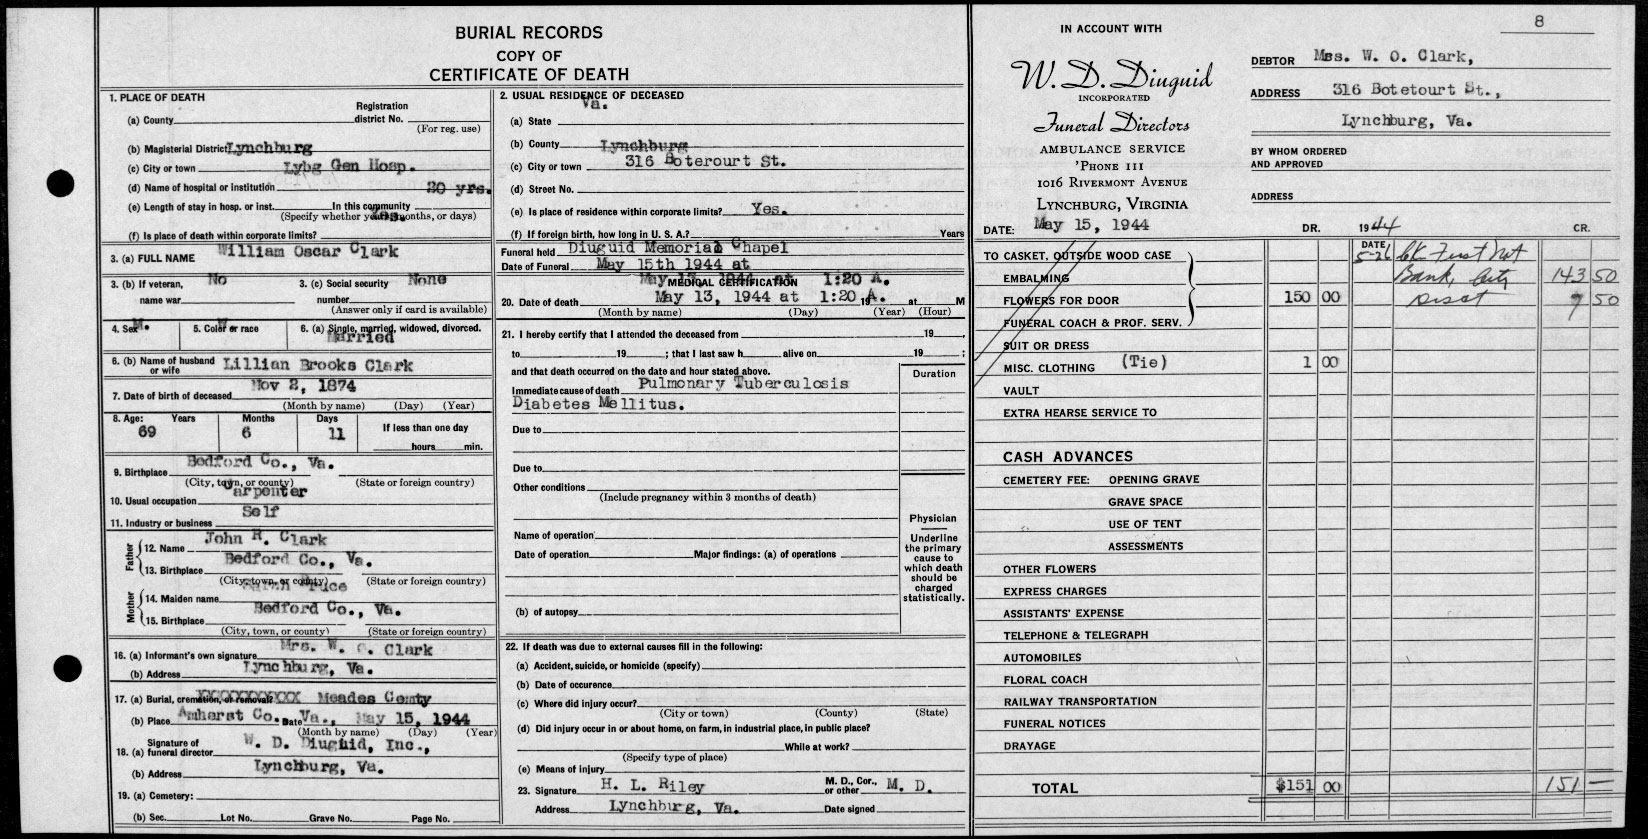 BURIAL RECORDS
COPY OF
CERTIFICATE OF DEATH
1. PLACE OF DEATH
(a) County
Registration district No.
(For reg. use)
(b) Magisterial District Lynchburg
(c) City or town Lybg Gen Hosp.
(d) Name of hospital or institution 20 yrs.
(e) Length of stay in hosp. or inst. In this community
(Specify whether years, months, or days)
(f) Is place of death within corporate limits? Yes.
3. (a) FULL NAME William Oscar Clark
3. (b) If veteran, name war No
3. (c) Social security number None
(Answer only if card is available)
4. Sex M.
5. Color or race W
6. (a) Single, married, widowed, divorced. Married
6. (b) Name of husband or wife Lillian Brooks Clark
7. Date of birth of deceased Nov 2, 1874
(Month by name) (Day) (Year)
8. Age: Years Months Days If less than one day
69 6 11
hours min.
9. Birthplace Bedford Co., Va.
(City, town, or county) (State or foreign country)
10. Usual occupation Carpenter
11. Industry or business Self
Father
12. Name John R. Clark
13. Birthplace Bedford Co., Va.
(City, town, or county) (State or foreign country)
Mother
14. Maiden name
15. Birthplace Bedford Co., Va.
(City, town, or county) (State or foreign country)
16. (a) Informant's own signature Mrs. W. O. Clark
(b) Address Lynchburg, Va.
17. (a) Burial, cremation, or removal? XXXXXXXXXXX Meades Cemty
(b) Place Amherst Co., Va., Date May 15, 1944
(Month by name) (Day) (Year)
18. (a) Signature of funeral director W. D. Diuguid, Inc.,
(b) Address Lynchburg, Va.
19. (a) Cemetery:
(b) Sec. Lot No. Grave No. Page No.
2. USUAL RESIDENCE OF DECEASED
Va.
(a) State
(b) County Lynchburg
(c) City or town 316 Botercourt St.
(d) Street No.
(e) Is place of residence within corporate limits? Yes.
(f) If foreign birth, how long in U. S. A.? Years
Funeral held Diuguid Memorial Chapel
Date of Funeral May 15th 1944 at
May 13, 1944 at 1:20 A.
MEDICAL CERTIFICATION
20. Date of death May 13, 1944 at 1:20 A. 19 at M
(Month by name) (Day) (Year) (Hour)
21. I hereby certify that I attended the deceased from 19 ,
to 19 ; that I last saw h alive on 19 ;
and that death occurred on the date and hour stated above.
Duration
Immediate cause of death Pulmonary Tuberculosis
Diabetes Mellitus.
Due to
Due to
Other conditions
(Include pregnancy within 3 months of death)
Name of operation
Date of operation Major findings: (a) of operations
(b) of autopsy
Physician
Underline the primary cause to which death should be charged statistically.
22. If death was due to external causes fill in the following:
(a) Accident, suicide, or homicide (specify)
(b) Date of occurence
(c) Where did injury occur?
(City or town) (County) (State)
(d) Did injury occur in or about home, on farm, in industrial place, in public place?
While at work?
(Specify type of place)
(e) Means of injury
23. Signature H. L. Riley M. D., Cor., or other M. D.
Address Lynchburg, Va. Date signed
8
IN ACCOUNT WITH
W. D. Diuguid
INCORPORATED
Funeral Directors
AMBULANCE SERVICE
'PHONE 111
1016 RIVERMONT AVENUE
LYNCHBURG, VIRGINIA
DATE: May 15, 1944
DEBTOR Mrs. W. O. Clark,
ADDRESS 316 Botetourt St.,
Lynchburg, Va.
BY WHOM ORDERED
AND APPROVED
ADDRESS
DR. 1944 CR.
TO CASKET, OUTSIDE WOOD CASE
DATE
5-26 Ck First Nat
EMBALMING
Bank, City 143 50
FLOWERS FOR DOOR 150 00
Disct 7 50
FUNERAL COACH & PROF. SERV.
SUIT OR DRESS
MISC. CLOTHING (Tie) 1 00
VAULT
EXTRA HEARSE SERVICE TO
CASH ADVANCES
CEMETERY FEE: OPENING GRAVE
GRAVE SPACE
USE OF TENT
ASSESSMENTS
OTHER FLOWERS
EXPRESS CHARGES
ASSISTANTS' EXPENSE
TELEPHONE & TELEGRAPH
AUTOMOBILES
FLORAL COACH
RAILWAY TRANSPORTATION
FUNERAL NOTICES
DRAYAGE
TOTAL $151 00 151 —